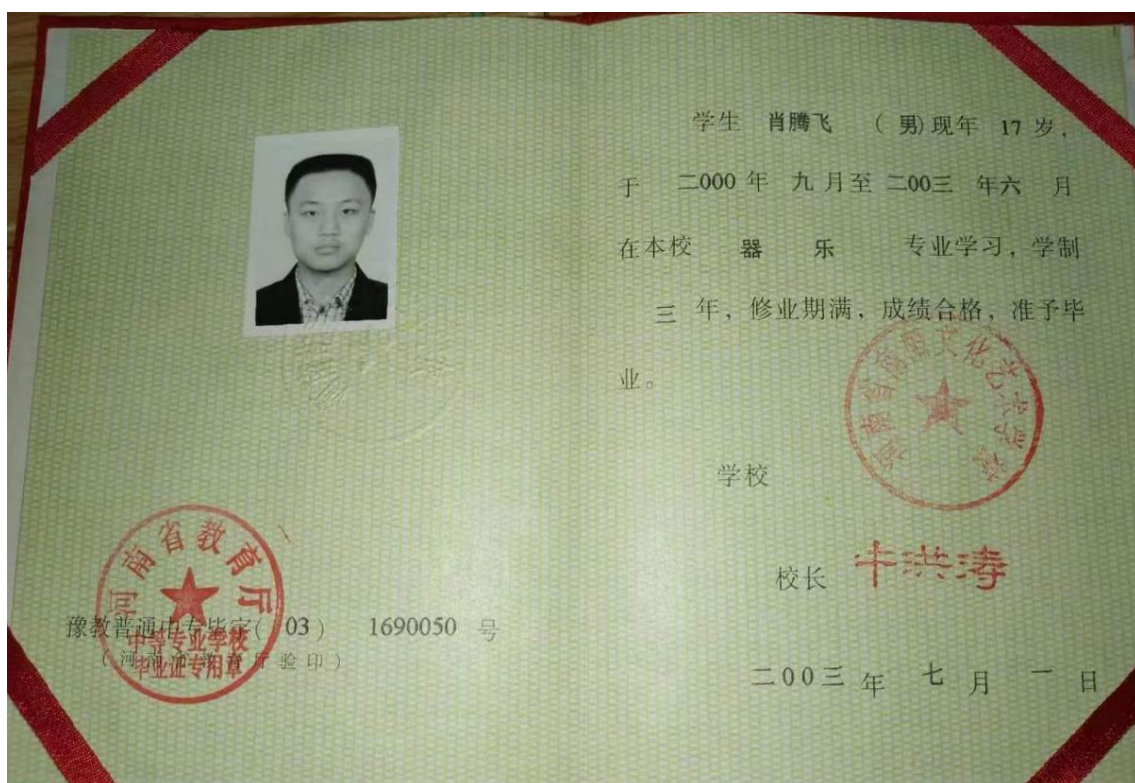 学生 肖腾飞 (男)现年 17 岁,
于 二000 年 九 月至 二00三 年六 月
在本校 器 乐 专业学习,学制
三 年,修业期满,成绩合格,准予毕
业。
河南省南阳文化艺术学校
学校
校长 牛洪涛
二00三 年 七 月 一 日
河南省教育厅
中等专业学校
毕业证专用章
豫教普通中专毕字( 03 ) 1690050 号
(河南省教育厅验印)